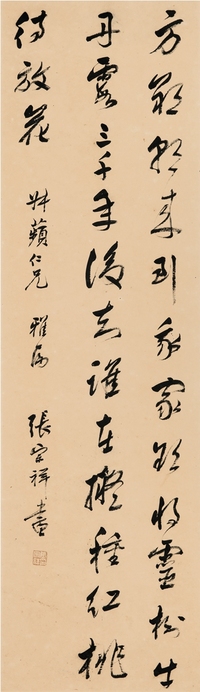 方朔朝来到我家欲将靈樹出
丹霞三千年後知誰在擬種紅桃
待放花
叔蘋仁兄 雅属 張宗祥書